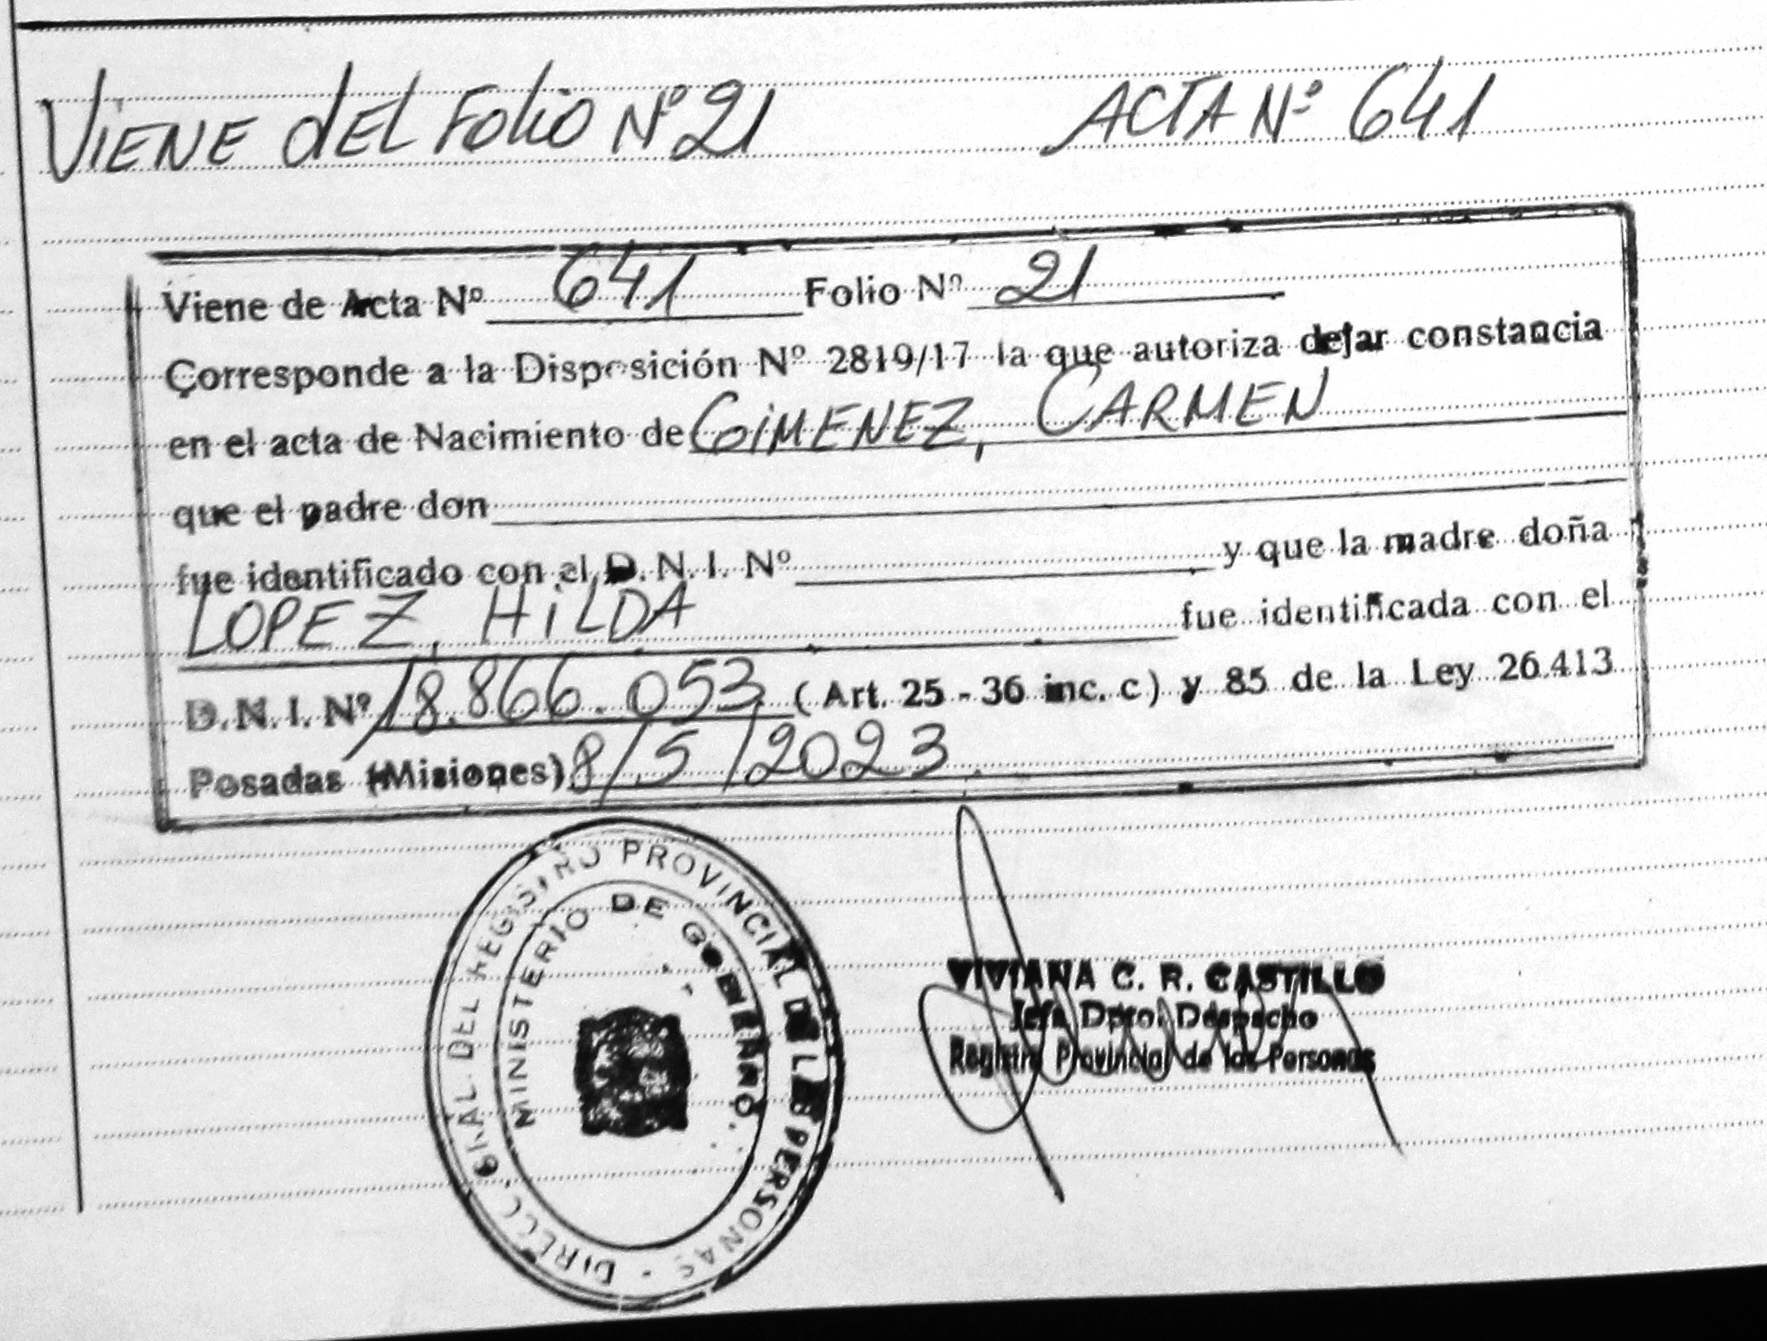 VIENE DEL FOLIO Nº 21 ACTA Nº 641
Viene de Acta Nº 641 Folio Nº 21
Corresponde a la Disposición Nº 2819/17 la que autoriza dejar constancia
en el acta de Nacimiento de GIMENEZ, CARMEN
que el padre don
fue identificado con el D.N.I. Nº y que la madre doña
LOPEZ, HILDA fue identificada con el
D.N.I. Nº 18.866.053 (Art. 25 - 36 inc. c) y 85 de la Ley 26.413
Posadas (Misiones) 8/5/2023
DIRECC. GRAL. DEL REGISTRO PROVINCIAL DE LAS PERSONAS
MINISTERIO DE GOBIERNO
VIVIANA C. R. CASTILLO
Jefa Dpto. Despacho
Registro Provincial de las Personas